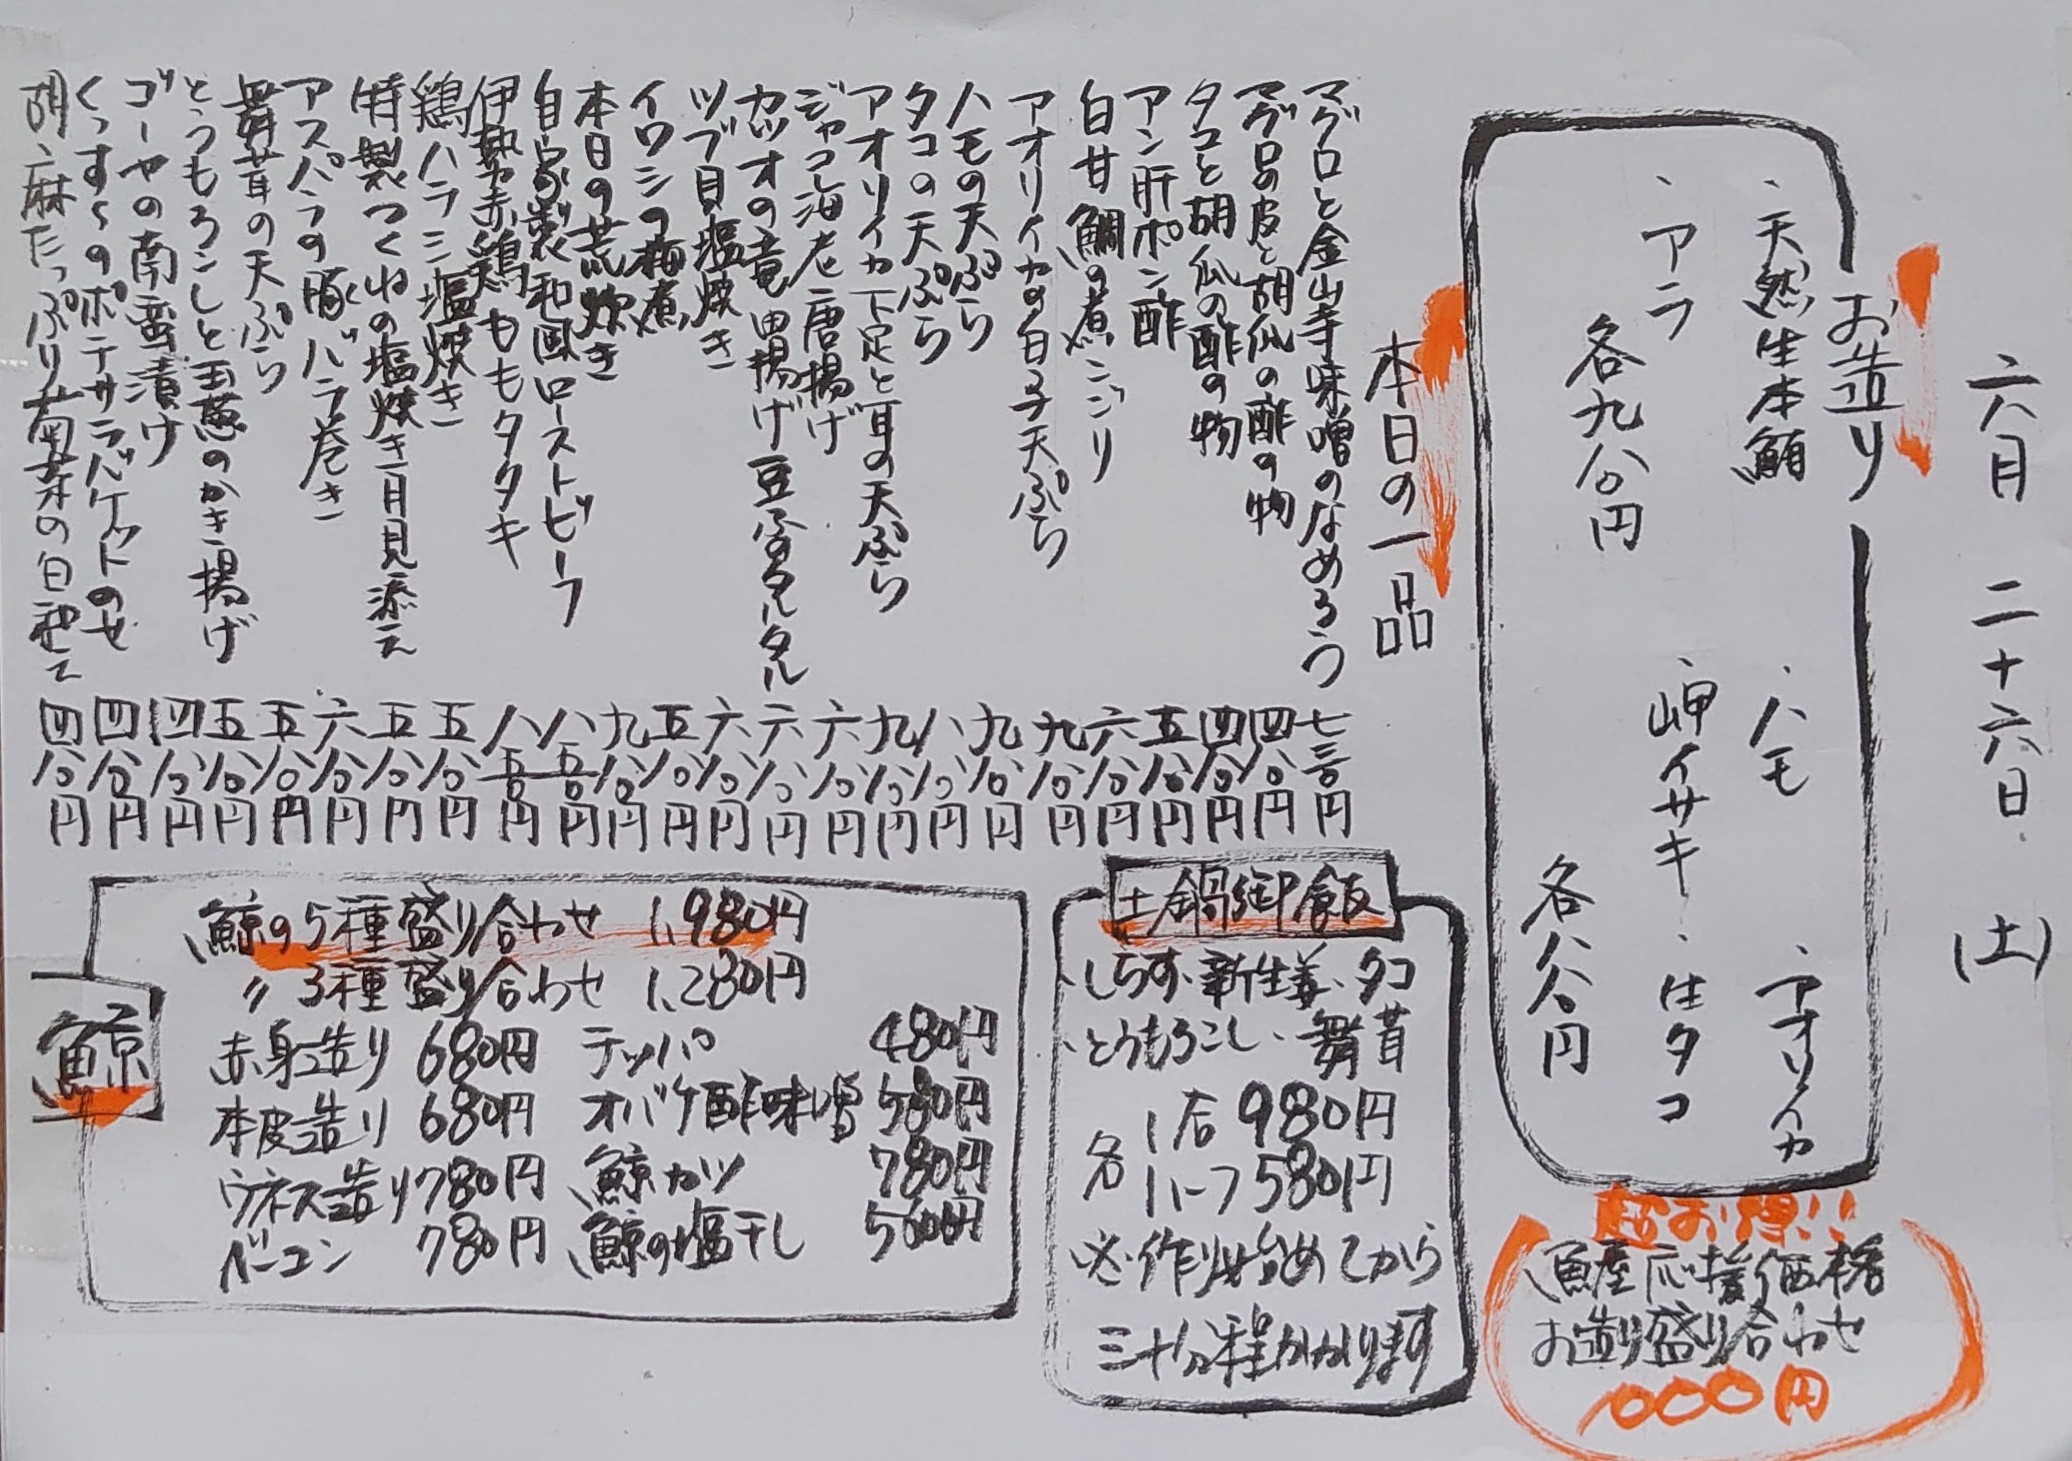 六月二十六日(土)
お造り
・天然生本鮪 ・ハモ ・アオリイカ
・アラ ・岬イサキ ・仕タコ
各九八〇円 各八八〇円
超お得!!
漁産応援価格
お造り盛り合わせ
1000円
本日の一品
マグロと金山寺味噌のなめろう 七三〇円
マグロの皮と胡瓜の酢の物 四八〇円
タコと胡瓜の酢の物 四八〇円
アン肝ポン酢 五八〇円
白甘鯛の煮こごり 六八〇円
アオリイカの白子天ぷら 九八〇円
ハモの天ぷら 九八〇円
タコの天ぷら 八八〇円
アオリイカ下足と耳の天ぷら 九八〇円
ジャコ海老唐揚げ 六八〇円
カツオの竜田揚げ豆腐タルタル 六八〇円
ツブ貝塩焼き 六八〇円
イワシの梅煮 五八〇円
本日の荒炊き 九八〇円
自家製和風ローストビーフ 八五〇円
伊勢赤鶏ももタタキ 八五〇円
鶏ハラミ塩焼き 五八〇円
特製つくねの塩焼き月見添え 五八〇円
アスパラの豚バラ巻き 六八〇円
舞茸の天ぷら 五八〇円
とうもろこしと玉葱のかき揚げ 五八〇円
ゴーヤの南蛮漬け 四八〇円
くんすものポテサラバケットのせ 四八〇円
胡麻たっぷり菊菜の白和え 四八〇円
土鍋御飯
・しらす・新生姜・タコ
・とうもろこし・舞茸
各 1合 980円
ハーフ 580円
※作り始めてから
三十分程かかります
鯨
鯨の5種盛り合わせ 1,980円
〃 3種盛り合わせ 1,280円
赤身造り 680円 テッパ 480円
本皮造り 680円 オバケ酢味噌 580円
ウネス造り 780円 鯨カツ 780円
ベーコン 780円 鯨の塩干し 500円